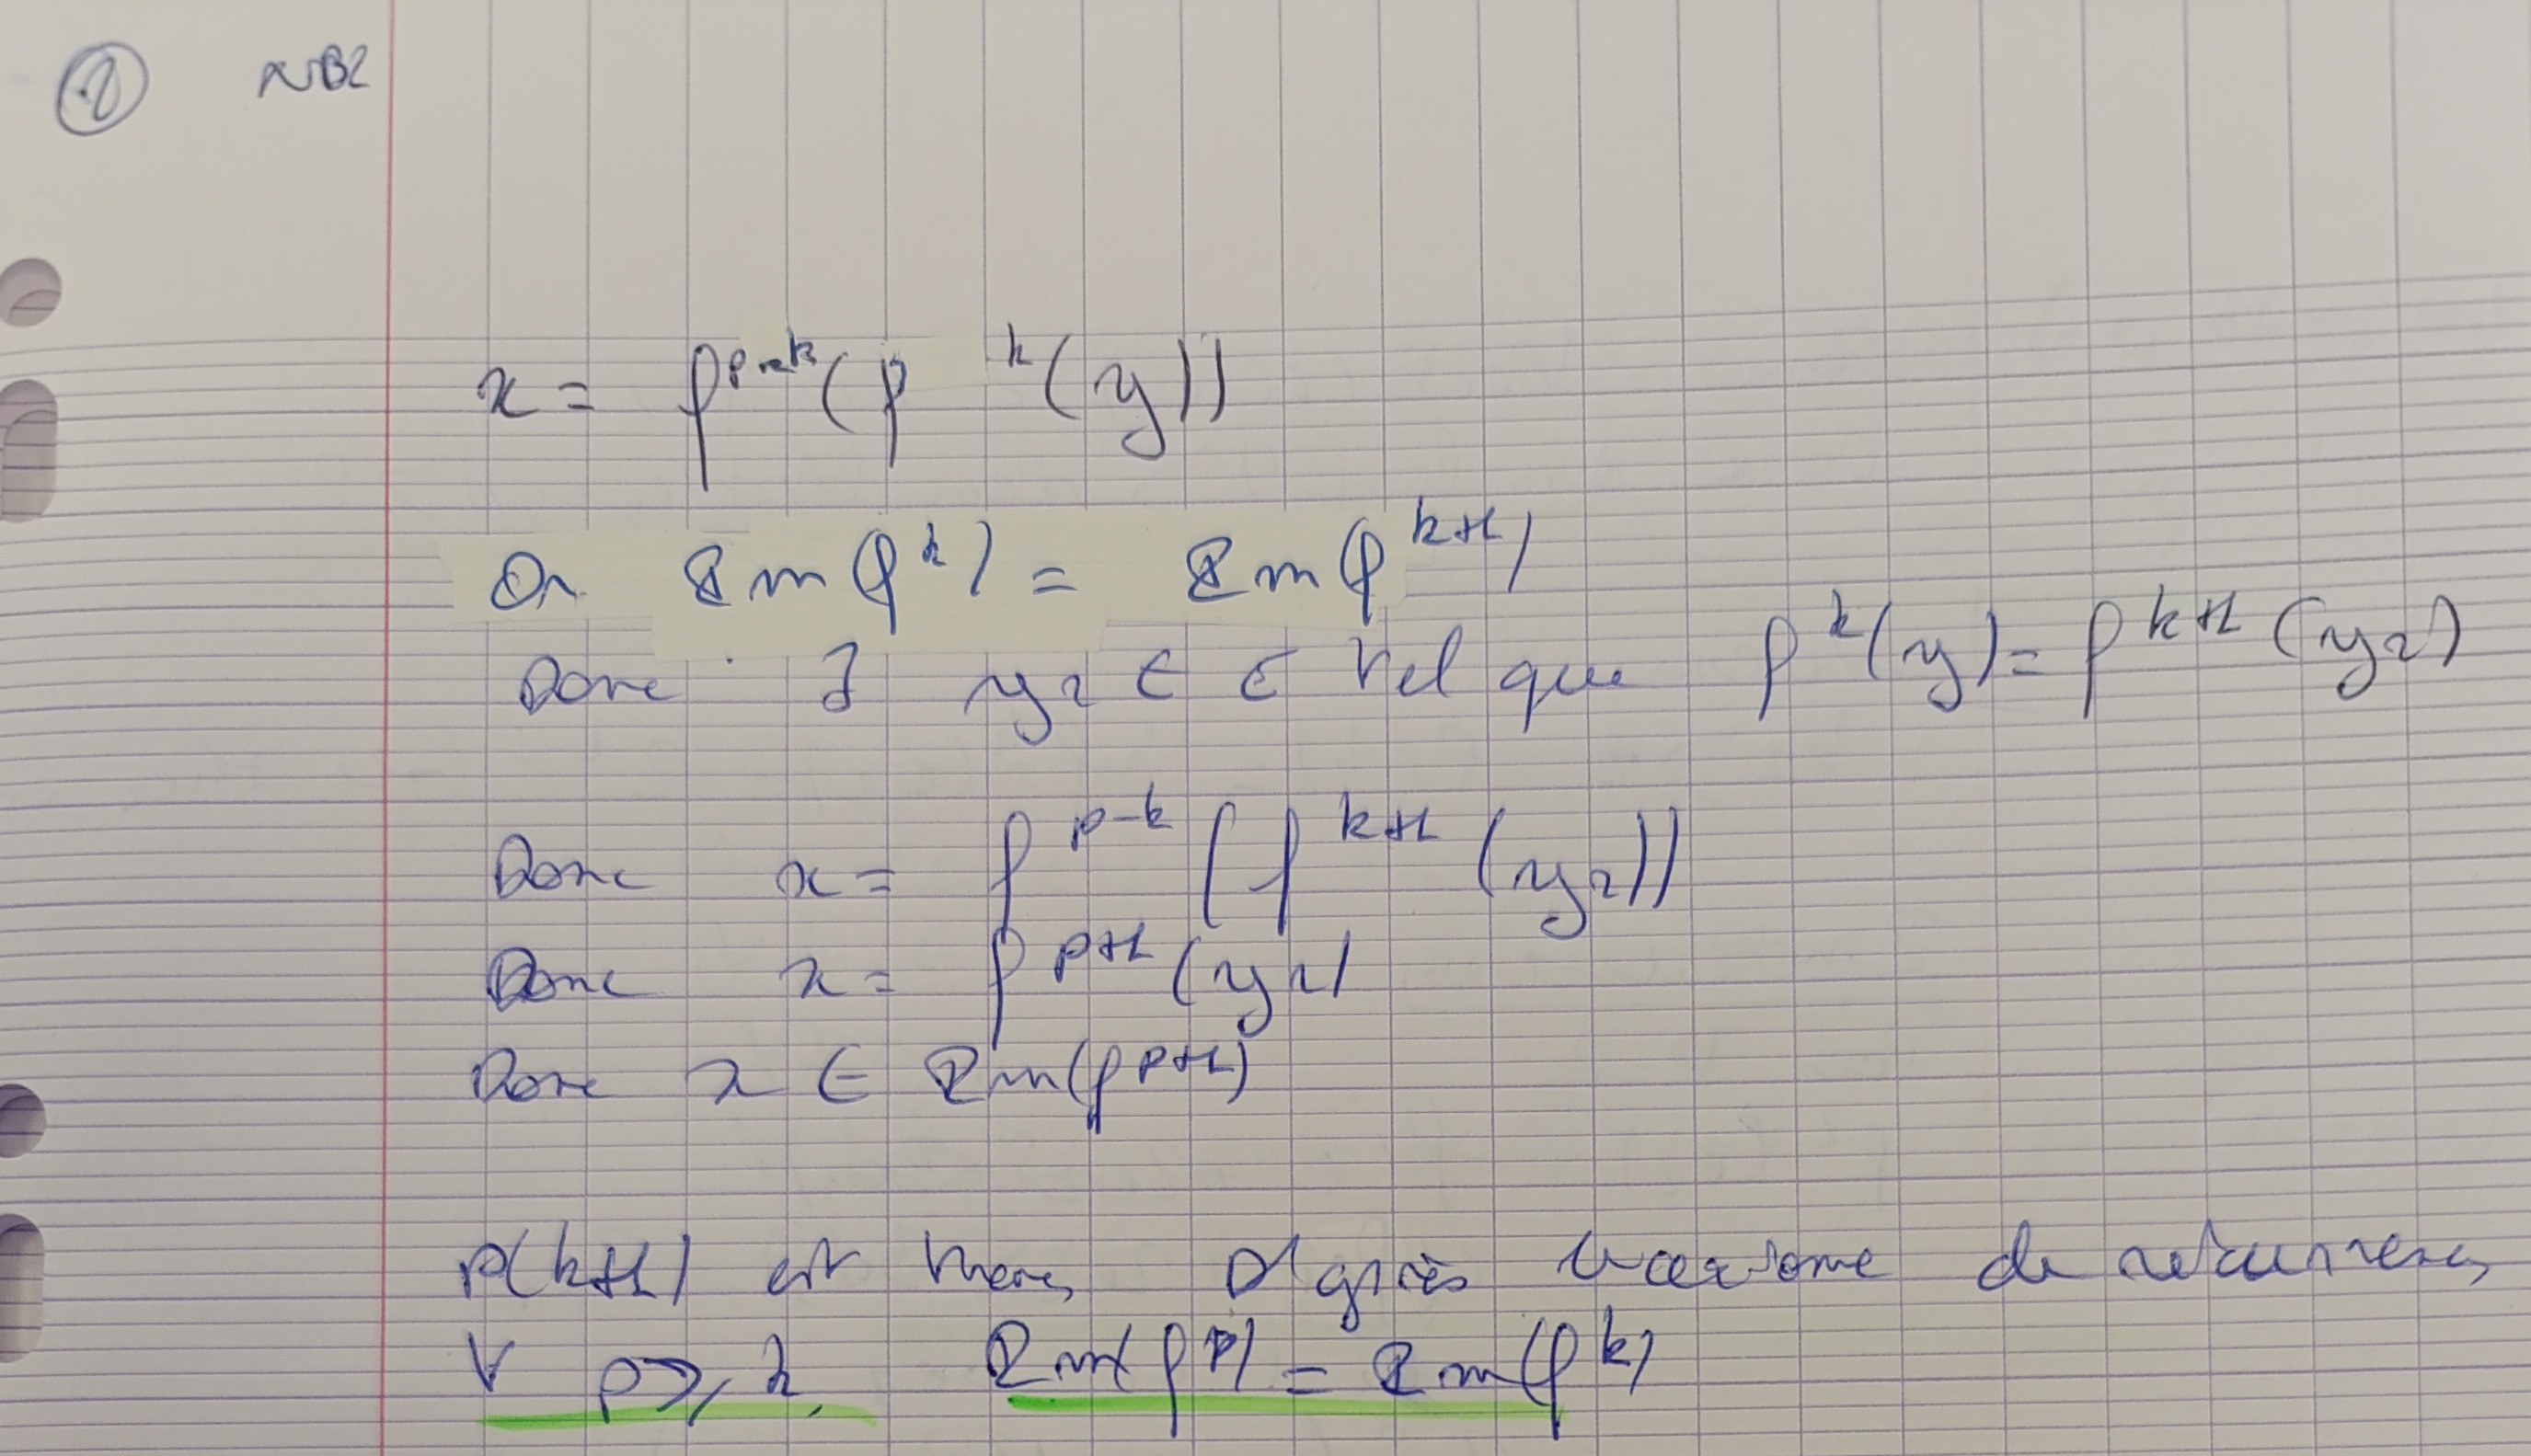 ② NB2
x = f^{p-k}(f^{k}(y))
Or Im(f^k) = Im(f^{k+1})
Donc ∃ y_2 ∈ E tel que f^k(y) = f^{k+1}(y_2)
Donc x = f^{p-k}(f^{k+1}(y_2))
Donc x = f^{p+1}(y_2)
Donc x ∈ Im(f^{p+1})
P(k+1) est vraie, D'après l'axiome de récurrence,
∀ p ≥ k, Im(f^p) = Im(f^k)